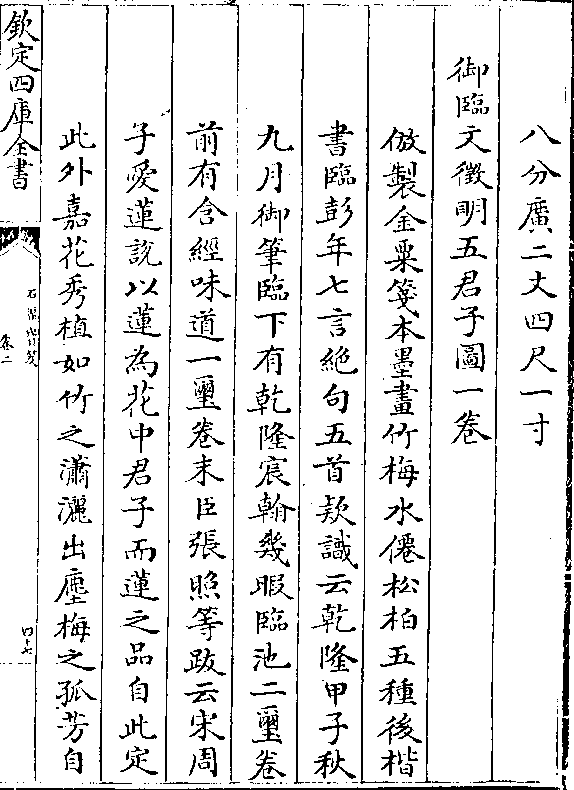 八分廣二丈四尺一寸
御臨文徵明五君子圖一卷
倣製金粟箋本墨畫竹梅水僊松柏五種後楷
書臨彭年七言絶句五首款識云乾隆甲子秋
九月御筆臨下有乾隆宸翰幾暇臨池二璽卷
前有含經味道一璽卷末臣張照等跋云宋周
子愛蓮說以蓮為花中君子而蓮之品自此定
此外嘉花秀植如竹之瀟灑出塵梅之孤芳自
欽定四庫全書
石渠寶笈
卷二
四十七